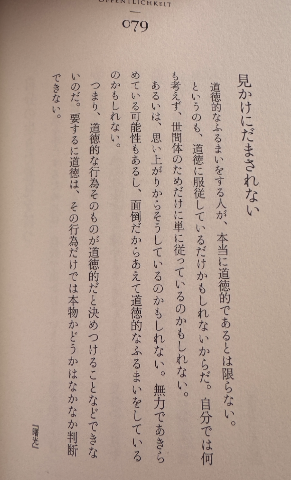 ÖFFENTLICHKEIT
079
見かけにだまされない
道徳的なふるまいをする人が、本当に道徳的であるとは限らない。
というのも、道徳に服従しているだけかもしれないからだ。自分では何
も考えず、世間体のためだけに単に従っているのかもしれない。
あるいは、思い上がりからそうしているのかもしれない。無力であきら
めている可能性もあるし、面倒だからあえて道徳的なふるまいをしている
のかもしれない。
つまり、道徳的な行為そのものが道徳的だと決めつけることなどできな
いのだ。要するに道徳は、その行為だけでは本物かどうかはなかなか判断
できない。
『曙光』